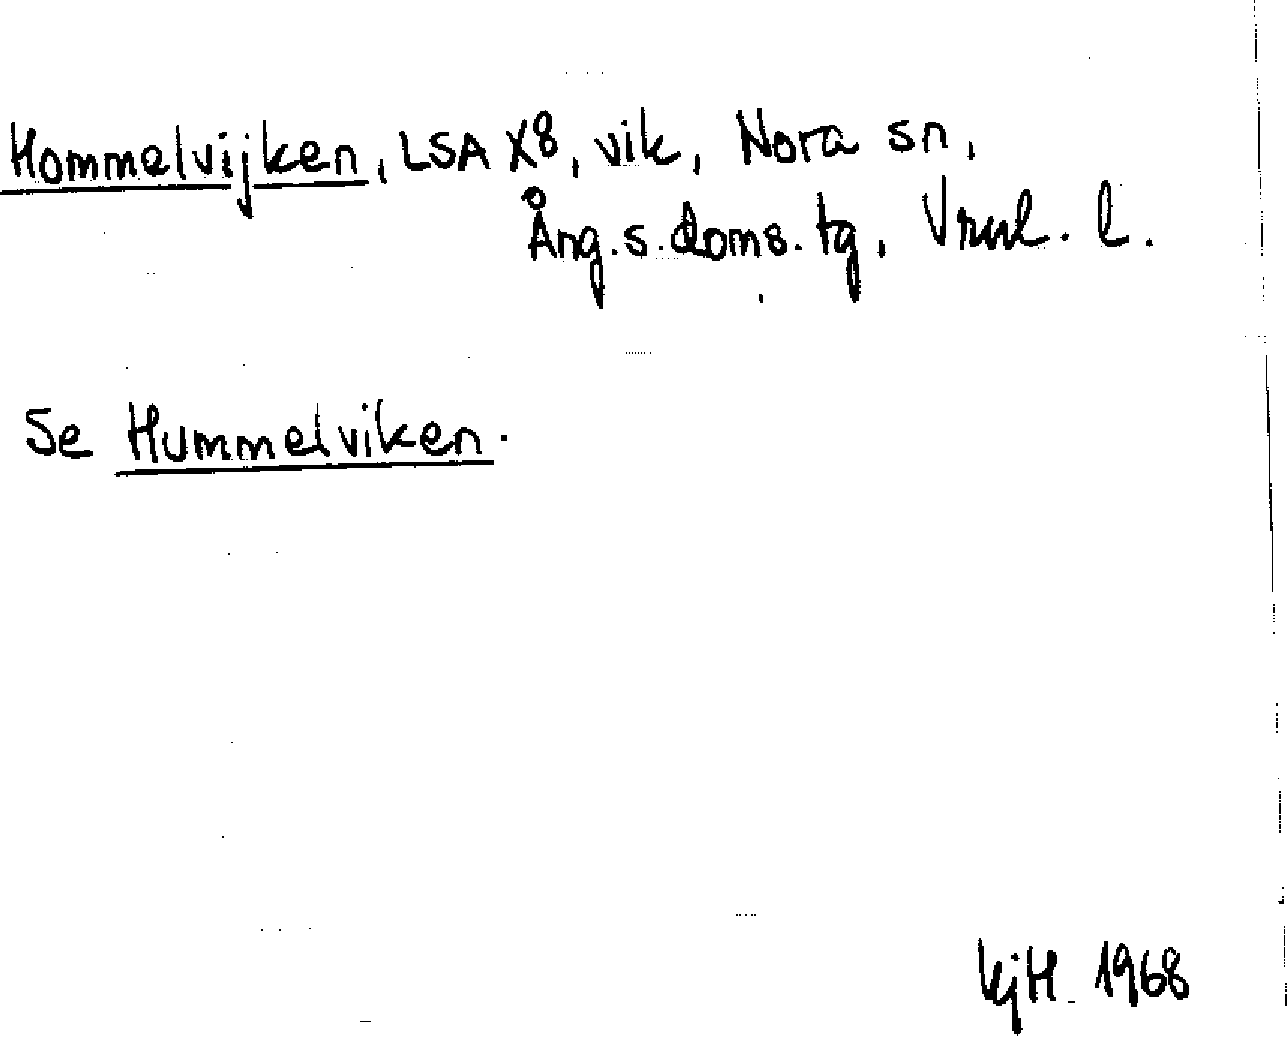 Hommelvijken, LSA X8, vik, Nora sn,
Ång.s.doms.tg, Vrnl. l.
Se Hummelviken.
KjH 1968